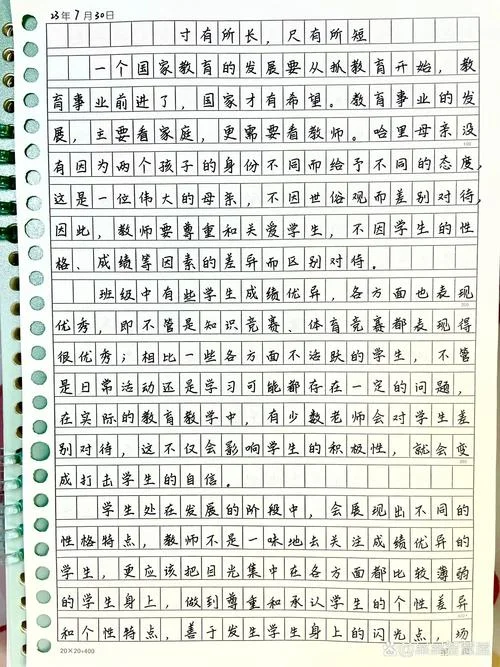 23年7月30日
寸有所长，尺有所短
一个国家教育的发展要从抓教育开始，教
育事业前进了，国家才有希望。教育事业的发
展，主要看家庭，更需要看教师。哈里母亲没
有因为两个孩子的身份不同而给予不同的态度，
这是一位伟大的母亲，不因世俗观而差别对待，
因此，教师要尊重和关爱学生，不因学生的性
格、成绩等因素的差异而区别对待。
班级中有些学生成绩优异，各方面也表现
优秀，即不管是知识竞赛、体育竞赛都表现得
很优秀；相比一些各方面不活跃的学生，不管
是日常活动还是学习可能都存在一定的问题，
在实际的教育教学中，有少数老师会对学生差
别对待，这不仅会影响学生的积极性，就会变
成打击学生的自信。
学生处在发展的阶段中，会展现出不同的
性格特点，教师不是一味地去关注成绩优异的
学生，更应该把目光集中在各方面都比较薄弱
的学生身上，做到尊重和承认学生的个性差异
和个性特点，善于发生学生身上的闪光点，场
20×20=400